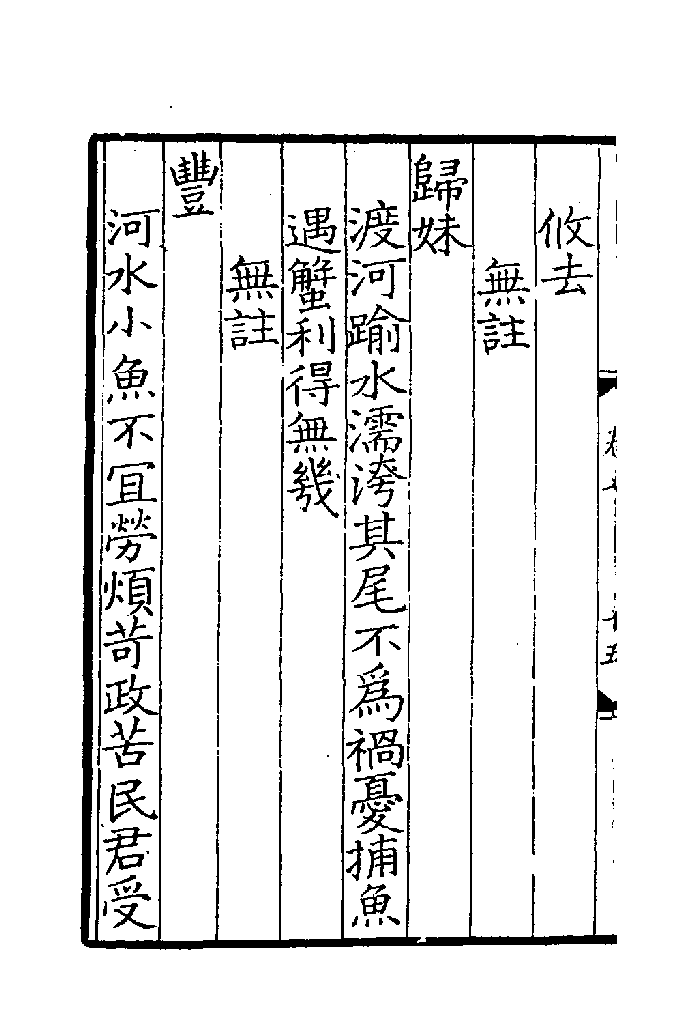 攸去
無註
歸妹
渡河踰水濡洿其尾不爲禍憂捕魚
遇蟹利得無㡬
無註
豐
河水小魚不冝勞煩苛政苦民君受